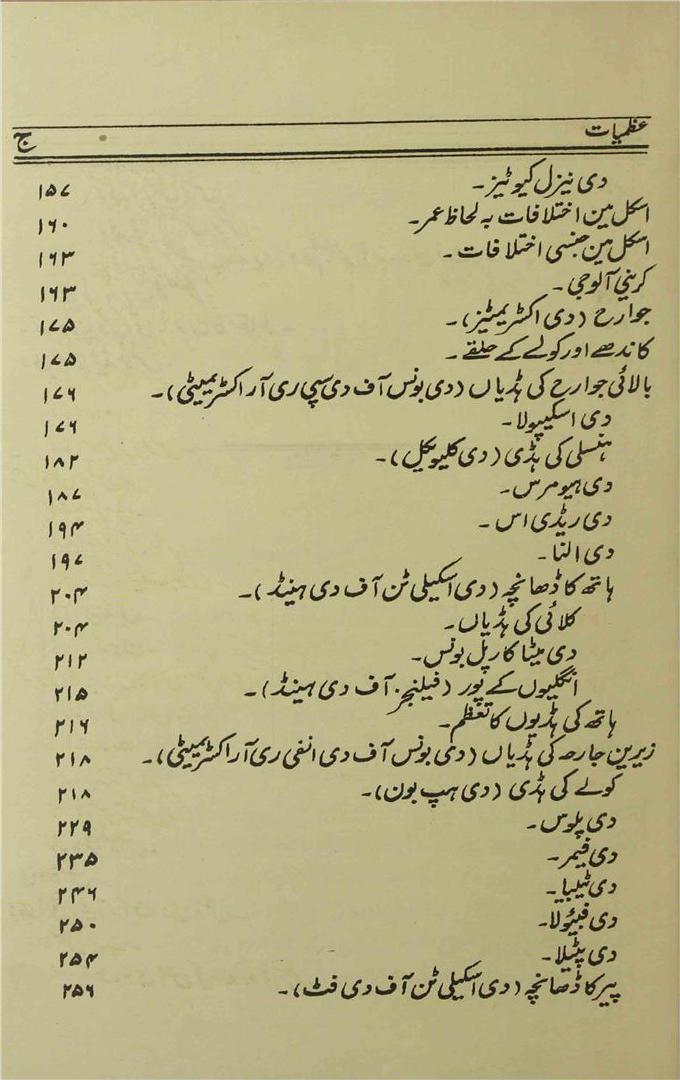 عظمیات ج
دی نیزل کیوٹیز۔ ۱۵۷
اسکل مین اختلافات بہ لحاظ عمر۔ ۱۶۰
اسکل مین جنسی اختلافات۔ ۱۶۳
کرینی آلوجی۔ ۱۶۳
جوارح (دی اکسٹریمیٹیز)۔ ۱۷۵
کاندھے اور کولے کے حلقے۔ ۱۷۵
بالائی جوارح کی ہڈیاں (دی بونس آف دی سپی ری آر اکسٹریمیٹی)۔ ۱۷۶
دی اسکیپولا۔ ۱۷۶
ہنسلی کی ہڈی (دی کلیویکل)۔ ۱۸۲
دی ہیومرس۔ ۱۸۷
دی ریڈی اس۔ ۱۹۴
دی النا۔ ۱۹۷
ہاتھ کا ڈھانچہ (دی اسکیلی ٹن آف دی ہینڈ)۔ ۲۰۴
کلائی کی ہڈیاں۔ ۲۰۴
دی میٹا کارپل بونس۔ ۲۱۲
انگلیوں کے پور (فیلنجز آف دی ہینڈ)۔ ۲۱۵
ہاتھ کی ہڈیوں کا تعظم۔ ۲۱۶
زیرین جارحہ کی ہڈیاں (دی بونس آف دی انفی ری آر اکسٹریمیٹی)۔ ۲۱۸
کولے کی ہڈی (دی ہپ بون)۔ ۲۱۸
دی پلوس۔ ۲۲۹
دی فیمر۔ ۲۳۵
دی ٹیبیا۔ ۲۴۶
دی فبیُولا۔ ۲۵۰
دی پٹیلا۔ ۲۵۴
پیر کا ڈھانچہ (دی اسکیلی ٹن آف دی فٹ)۔ ۲۵۶